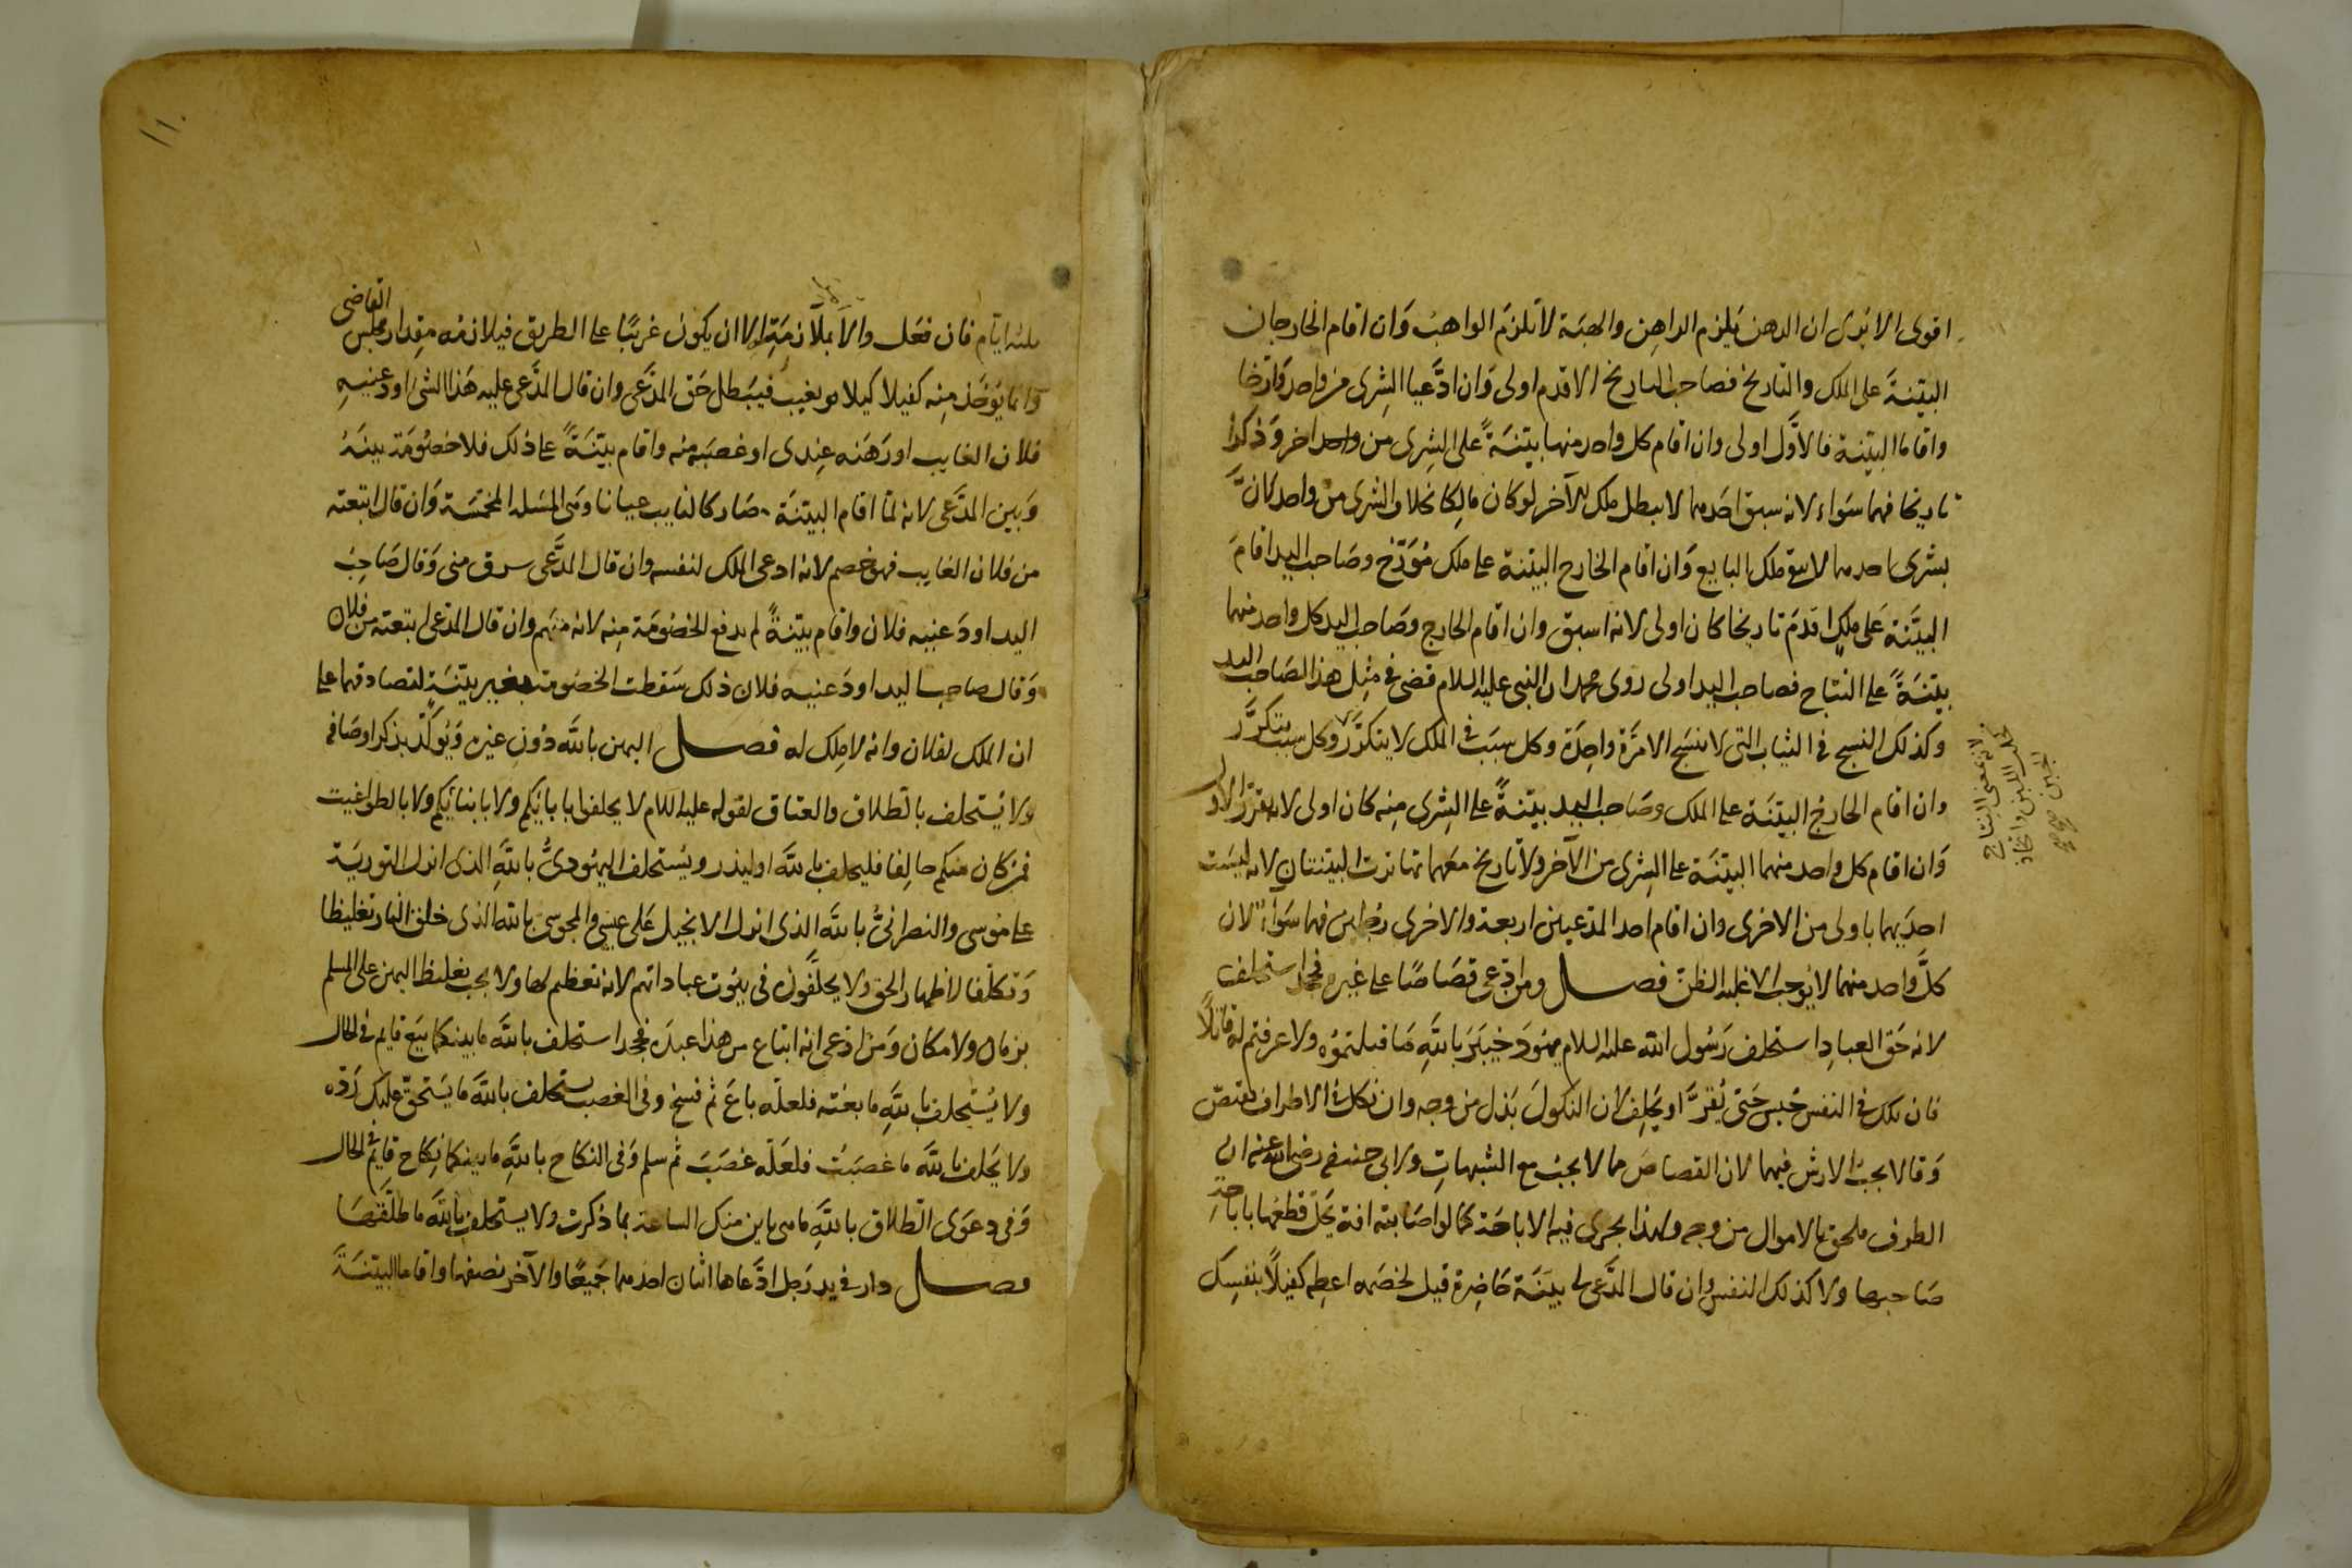 اقوى الا ترى ان الرهن يلزم الراهن والهبة لا تلزم الواهب وان اقام الخارجان
البينة على الملك والتاريخ فصاحب التاريخ الاقدم اولى وان ادعيا الشرى من واحد وارخا
واقاما البينة فالاول اولى وان اقام كل واحد منهما بينة على الشرى من واحد اخر وذكرا
تاريخا فهما سواء لانه سبق احدهما لا يبطل ملك الآخر لو كان مالكا بخلاف الشرى من واحد لان
بشرى احدهما لا يبقى ملك البايع وان اقام الخارج البينة على ملك مؤرخ وصاحب اليد اقام
البينة على ملك اقدم تاريخا كان اولى لانه اسبق وان اقام الخارج وصاحب اليد كل واحد منهما
بينة على النتاج فصاحب اليد اولى روى محمد ان النبي عليه السلام قضى في مثل هذا لصاحب اليد
وكذلك النسج في الثياب التى لا تنسج الا مرة واحدة وكل سبب في الملك لا يتكرر وكل سبب يتكرر
لانه بمعنى النتاج
كحلب اللبن واتخاذ
الجبن صح
وان اقام الخارج البينة على الملك وصاحب اليد بينة على الشرى منه كان اولى لانه يقرر الاول
وان اقام كل واحد منهما البينة على الشرى من الآخر ولا تاريخ معهما تهاترت البينتان لانه ليست
احديهما باولى من الاخرى وان اقام احد المدعيين اربعة والاخرى فهما سواء لان
كل واحد منهما لا يوجب الا غلبة الظن فصل ومن ادعى قصاصا على غيره فجحد استحلف
لانه حق العباد استحلف رسول الله عليه السلام يهود خيبر بالله ما قتلتموه ولا عرفتم له قاتلا
فان نكل في النفس حبس حتى يقر او يحلف لان النكول بذل من وجه وان نكل في الاطراف يقتص
وقالا يجب الارش فيهما لان القصاص مما لا يجب مع الشبهات ولابي حنيفة رضي الله عنه ان
الطرف ملحق بالاموال من وجه ولهذا يجرى فيه الاباحة كما لو اصابته افة يحل قطعها باباحة
صاحبها ولا كذلك النفس وان قال المدعى لى بينة حاضرة قيل لخصمه اعطه كفيلا بنفسك
١١٠
ثلثة ايام فان فعل والا يلازمه الا ان يكون غريبا على الطريق فيلازمه مقدار مجلس القاضى
وانما يؤخذ منه كفيلا كيلا يغيب فيبطل حق المدعى وان قال المدعى عليه هذا الشئ اودعنيه
فلان الغايب او رهنه عندى او غصبته منه واقام بينة على ذلك فلا خصومة بينه
وبين المدعى لانه لما اقام البينة صار كالغايب عيانا وهى المسئلة المخمسة وان قال ابتعته
من فلان الغايب فهو خصم لانه ادعى الملك لنفسه وان قال المدعى سرق منى وقال صاحب
اليد اودعنيه فلان واقام بينة لم يدفع الخصومة منه لانه متهم وان قال المدعى ابتعته من فلان
وقال صاحب اليد اودعنيه فلان ذلك سقطت الخصومة بغير بينة لتصادقهما على
ان الملك لفلان وانه لا ملك له فصل اليمن بالله دون غيره ويؤكد بذكر اوصافه
ولا يستحلف بالطلاق والعتاق لقوله عليه السلام لا يحلفوا بابائكم ولا بابنائكم ولا بالطواغيت
فمن كان منكم حالفا فليحلف بالله او ليذر ويستحلف اليهودى بالله الذى انزل التورية
على موسى والنصرانى بالله الذى انزل الانجيل على عيسى والمجوسى بالله الذى خلق النار تغليظا
وتكلفا لاظهار الحق ولا يحلفون فى بيوت عباداتهم لانه تعظيم لها ولا يجب تغليظ اليمن على المسلم
بزمان ولا مكان ومن ادعى انه ابتاع من هذا عبده فجحد استحلف بالله ما بينكما بيع قايم في الحال
ولا يستحلف بالله ما بعته فلعله باع ثم فسخ وفى الغصب يستحلف بالله ما يستحق عليك رده
ولا يحلف بالله ما غصبت فلعله غصب ثم سلم وفى النكاح بالله ما بينكما نكاح قايم في الحال
وفى دعوى الطلاق بالله ما هى باين منك الساعة بما ذكرت ولا يستحلف بالله ما طلقتها
فصل دار في يد رجل ادعاها اثنان احدهما جميعا والآخر نصفها واقاما البينة